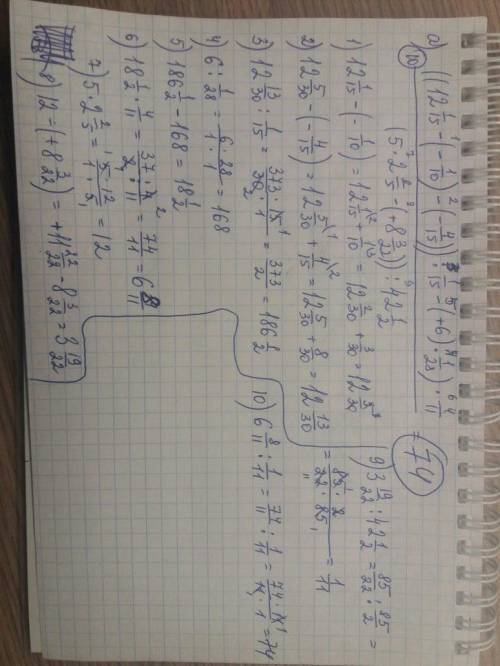 а)
10) ((12 1/15 - (- 1/10) - (- 4/15)) : 1/15 - (+6) : 1/28) · 4/11
(5 · 2 2/5 - (+8 3/22)) : 42 1/2
= 74
1) 12 1/15 - (- 1/10) = 12 1/15 + 1/10 = 12 2/30 + 3/30 = 12 5/30
2) 12 5/30 - (- 4/15) = 12 5/30 + 4/15 = 12 5/30 + 8/30 = 12 13/30
3) 12 13/30 : 1/15 = 373 · 15/30 · 1 = 373/2 = 186 1/2
4) 6 : 1/28 = 6 · 28/1 · 1 = 168
5) 186 1/2 - 168 = 18 1/2
6) 18 1/2 · 4/11 = 37 · 4/2 · 11 = 74/11 = 6 8/11
7) 5 · 2 2/5 = 5 · 12/1 · 5 = 12
8) 12 = (+8 3/22) = +11 22/22 - 8 3/22 = 3 19/22
9) 3 19/22 : 42 1/2 = 85/22 : 85/2 =
= 85 · 2/22 · 85 = 1/11
10) 6 8/11 : 1/11 = 74/11 : 1/11 = 74 · 11/11 · 1 = 74